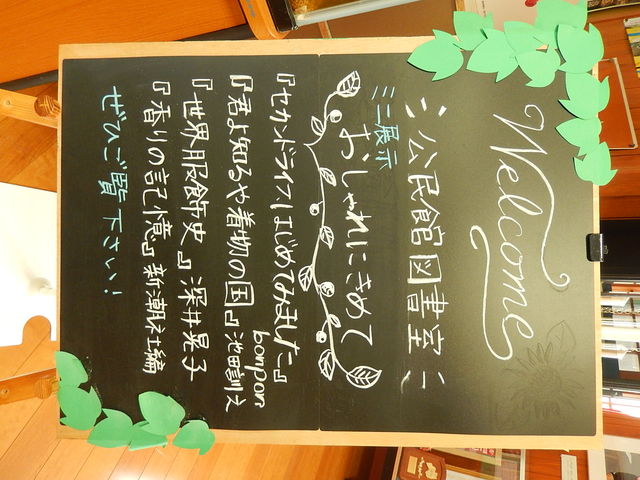 Welcome
公民館図書室
ミニ展示
おしゃれにきめて
『セカンドライフ、はじめてみました』
bonpon
『君よ知るや着物の国』池田訓之
『世界服飾史』深井晃子
『香りの記憶』新潮社編
ぜひご覧下さい!